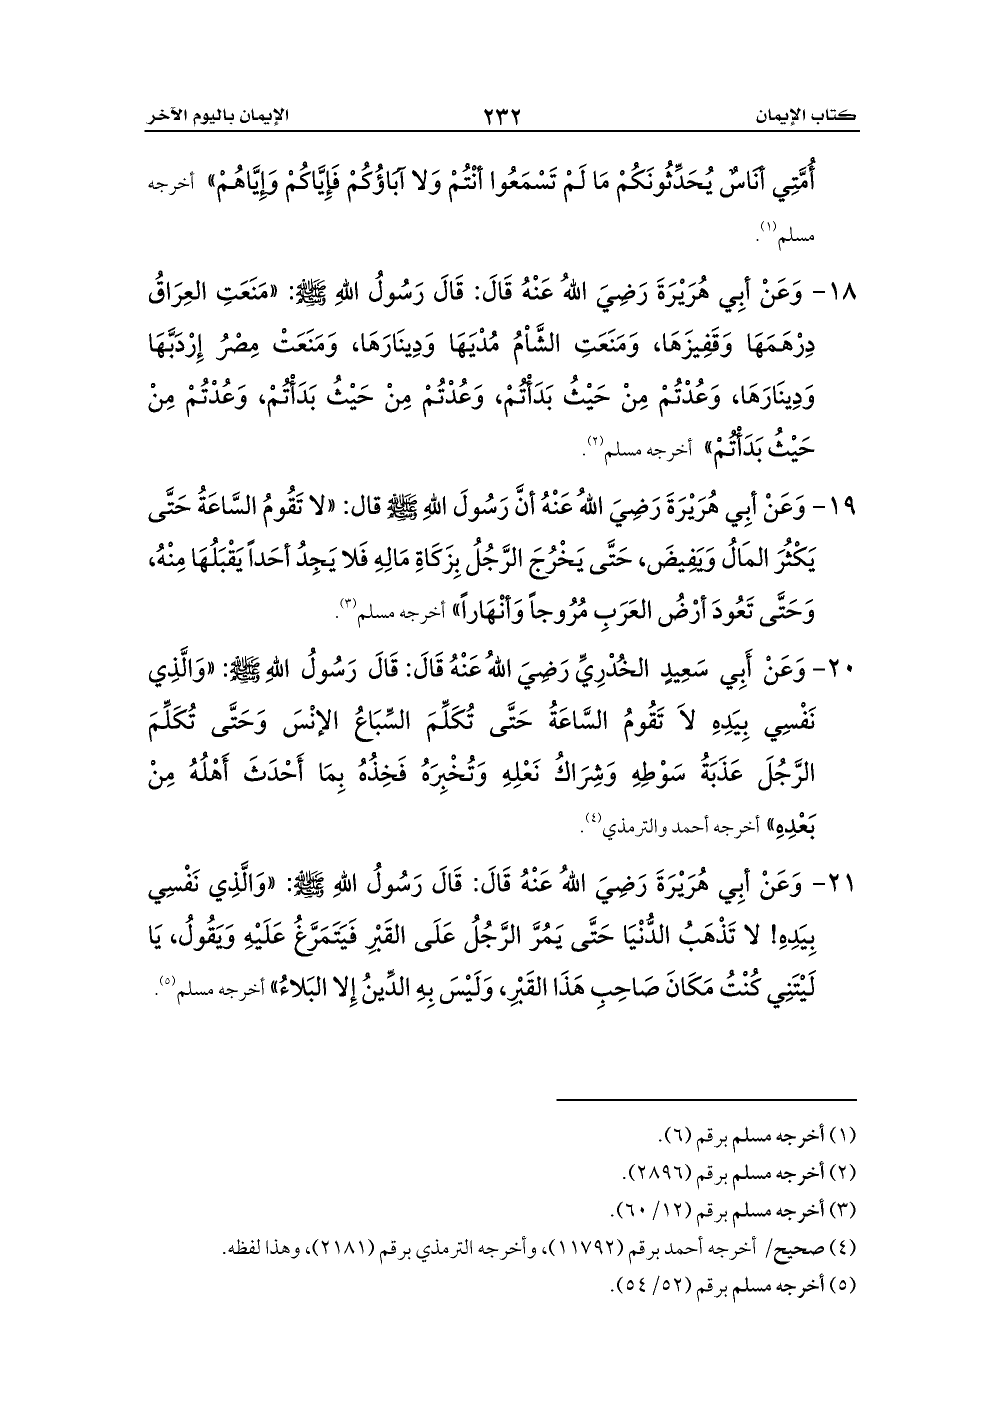 كتاب الإيمان ٢٣٢ الإيمان باليوم الآخر
أُمَّتِي أنَاسٌ يُحَدِّثُونَكُمْ مَا لَمْ تَسْمَعُوا أنْتُمْ وَلا آبَاؤُكُمْ فَإِيَّاكُمْ وَإِيَّاهُمْ» أخرجه
مسلم(١).
١٨- وَعَنْ أبِي هُرَيْرَةَ رَضِيَ اللهُ عَنْهُ قَالَ: قَالَ رَسُولُ اللهِ ﷺ: «مَنَعَتِ العِرَاقُ
دِرْهَمَهَا وَقَفِيزَهَا، وَمَنَعَتِ الشَّأْمُ مُدْيَهَا وَدِينَارَهَا، وَمَنَعَتْ مِصْرُ إِرْدَبَّهَا
وَدِينَارَهَا، وَعُدْتُمْ مِنْ حَيْثُ بَدَأْتُمْ، وَعُدْتُمْ مِنْ حَيْثُ بَدَأْتُمْ، وَعُدْتُمْ مِنْ
حَيْثُ بَدَأْتُمْ» أخرجه مسلم(٢).
١٩- وَعَنْ أبِي هُرَيْرَةَ رَضِيَ اللهُ عَنْهُ أنَّ رَسُولَ اللهِ ﷺ قال: «لا تَقُومُ السَّاعَةُ حَتَّى
يَكْثُرَ المَالُ وَيَفِيضَ، حَتَّى يَخْرُجَ الرَّجُلُ بِزَكَاةِ مَالِهِ فَلا يَجِدُ أحَداً يَقْبَلُهَا مِنْهُ،
وَحَتَّى تَعُودَ أرْضُ العَرَبِ مُرُوجاً وَأنْهَاراً» أخرجه مسلم(٣).
٢٠- وَعَنْ أَبِي سَعِيدٍ الخُدْرِيِّ رَضِيَ اللهُ عَنْهُ قَالَ: قَالَ رَسُولُ اللهِ ﷺ: «وَالَّذِي
نَفْسِي بِيَدِهِ لاَ تَقُومُ السَّاعَةُ حَتَّى تُكَلِّمَ السِّبَاعُ الإنْسَ وَحَتَّى تُكَلِّمَ
الرَّجُلَ عَذَبَةُ سَوْطِهِ وَشِرَاكُ نَعْلِهِ وَتُخْبِرَهُ فَخِذُهُ بِمَا أَحْدَثَ أَهْلُهُ مِنْ
بَعْدِهِ» أخرجه أحمد والترمذي(٤).
٢١- وَعَنْ أبِي هُرَيْرَةَ رَضِيَ اللهُ عَنْهُ قَالَ: قَالَ رَسُولُ اللهِ ﷺ: «وَالَّذِي نَفْسِي
بِيَدِهِ! لا تَذْهَبُ الدُّنْيَا حَتَّى يَمُرَّ الرَّجُلُ عَلَى القَبْرِ فَيَتَمَرَّغُ عَلَيْهِ وَيَقُولُ، يَا
لَيْتَنِي كُنْتُ مَكَانَ صَاحِبِ هَذَا القَبْرِ، وَلَيْسَ بِهِ الدِّينُ إِلا البَلاءُ» أخرجه مسلم(٥).
(١) أخرجه مسلم برقم (٦).
(٢) أخرجه مسلم برقم (٢٨٩٦).
(٣) أخرجه مسلم برقم (١٢/ ٦٠).
(٤) صحيح/ أخرجه أحمد برقم (١١٧٩٢)، وأخرجه الترمذي برقم (٢١٨١)، وهذا لفظه.
(٥) أخرجه مسلم برقم (٥٢/ ٥٤).